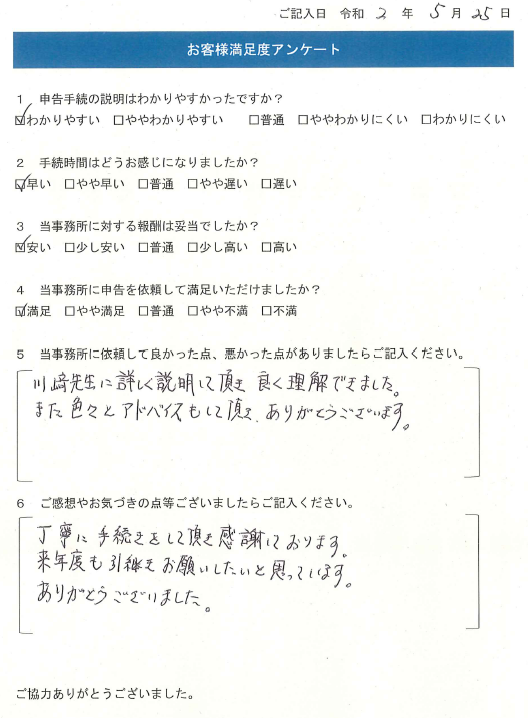 ご記入日 令和 2 年 5 月 25 日
お客様満足度アンケート
1 申告手続の説明はわかりやすかったですか？
☑わかりやすい □ややわかりやすい □普通 □ややわかりにくい □わかりにくい
2 手続時間はどうお感じになりましたか？
☑早い □やや早い □普通 □やや遅い □遅い
3 当事務所に対する報酬は妥当でしたか？
☑安い □少し安い □普通 □少し高い □高い
4 当事務所に申告を依頼して満足いただけましたか？
☑満足 □やや満足 □普通 □やや不満 □不満
5 当事務所に依頼して良かった点、悪かった点がありましたらご記入ください。
川崎先生に詳しく説明して頂き 良く理解できました。
また色々とアドバイスもして頂き、ありがとうございます。
6 ご感想やお気づきの点等ございましたらご記入ください。
丁寧に手続きをして頂き感謝しております。
来年度も引継きお願いしたいと思っています。
ありがとうございました。
ご協力ありがとうございました。